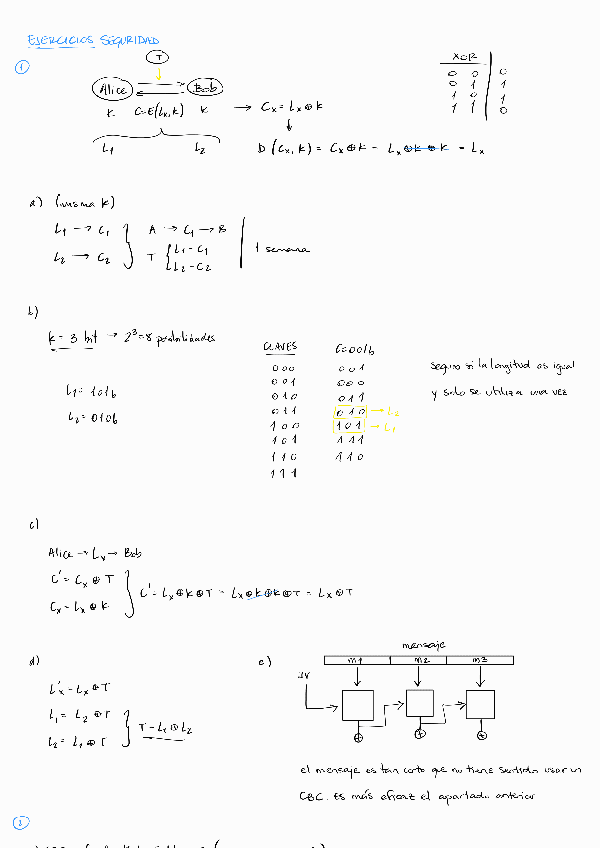 EJERCICIOS SEGURIDAD
1
T
Alice Bob
K C=E(Lx,K) K → Cx = Lx ⊕ K
L1 L2 D(Cx,K) = Cx ⊕ K = Lx ⊕ K ⊕ K = Lx
XOR
0 0 0
0 1 1
1 0 1
1 1 0
a) (misma K)
L1 → C1 A → C1 → B
L2 → C2 T L1 - C1
L2 - C2
1 semana
b)
K = 3 bit → 2³ = 8 posibilidades
L1 = 101b
L2 = 010b
CLAVES C=001b
000 001
001 000
010 011
011 010 → L2
100 101 → L1
101 111
110 110
111
seguro si la longitud es igual
y solo se utiliza una vez
c)
Alice → Lx → Bob
C' = Cx ⊕ T
Cx = Lx ⊕ K
C' = Lx ⊕ K ⊕ T = Lx ⊕ K ⊕ K ⊕ T = Lx ⊕ T
d)
L'x = Lx ⊕ T
L1 = L2 ⊕ T
L2 = L1 ⊕ T
T = L1 ⊕ L2
e)
mensaje
m1 m2 m3
IV
el mensaje es tan corto que no tiene sentido usar un
CBC. Es más eficaz el apartado anterior
2